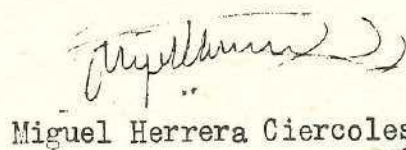 Miguel Herrera Ciercoles